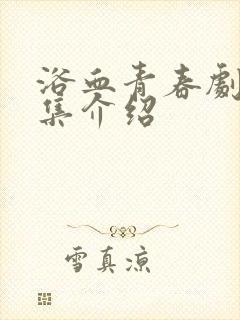 浴血青春劇
集介绍
雪真凉